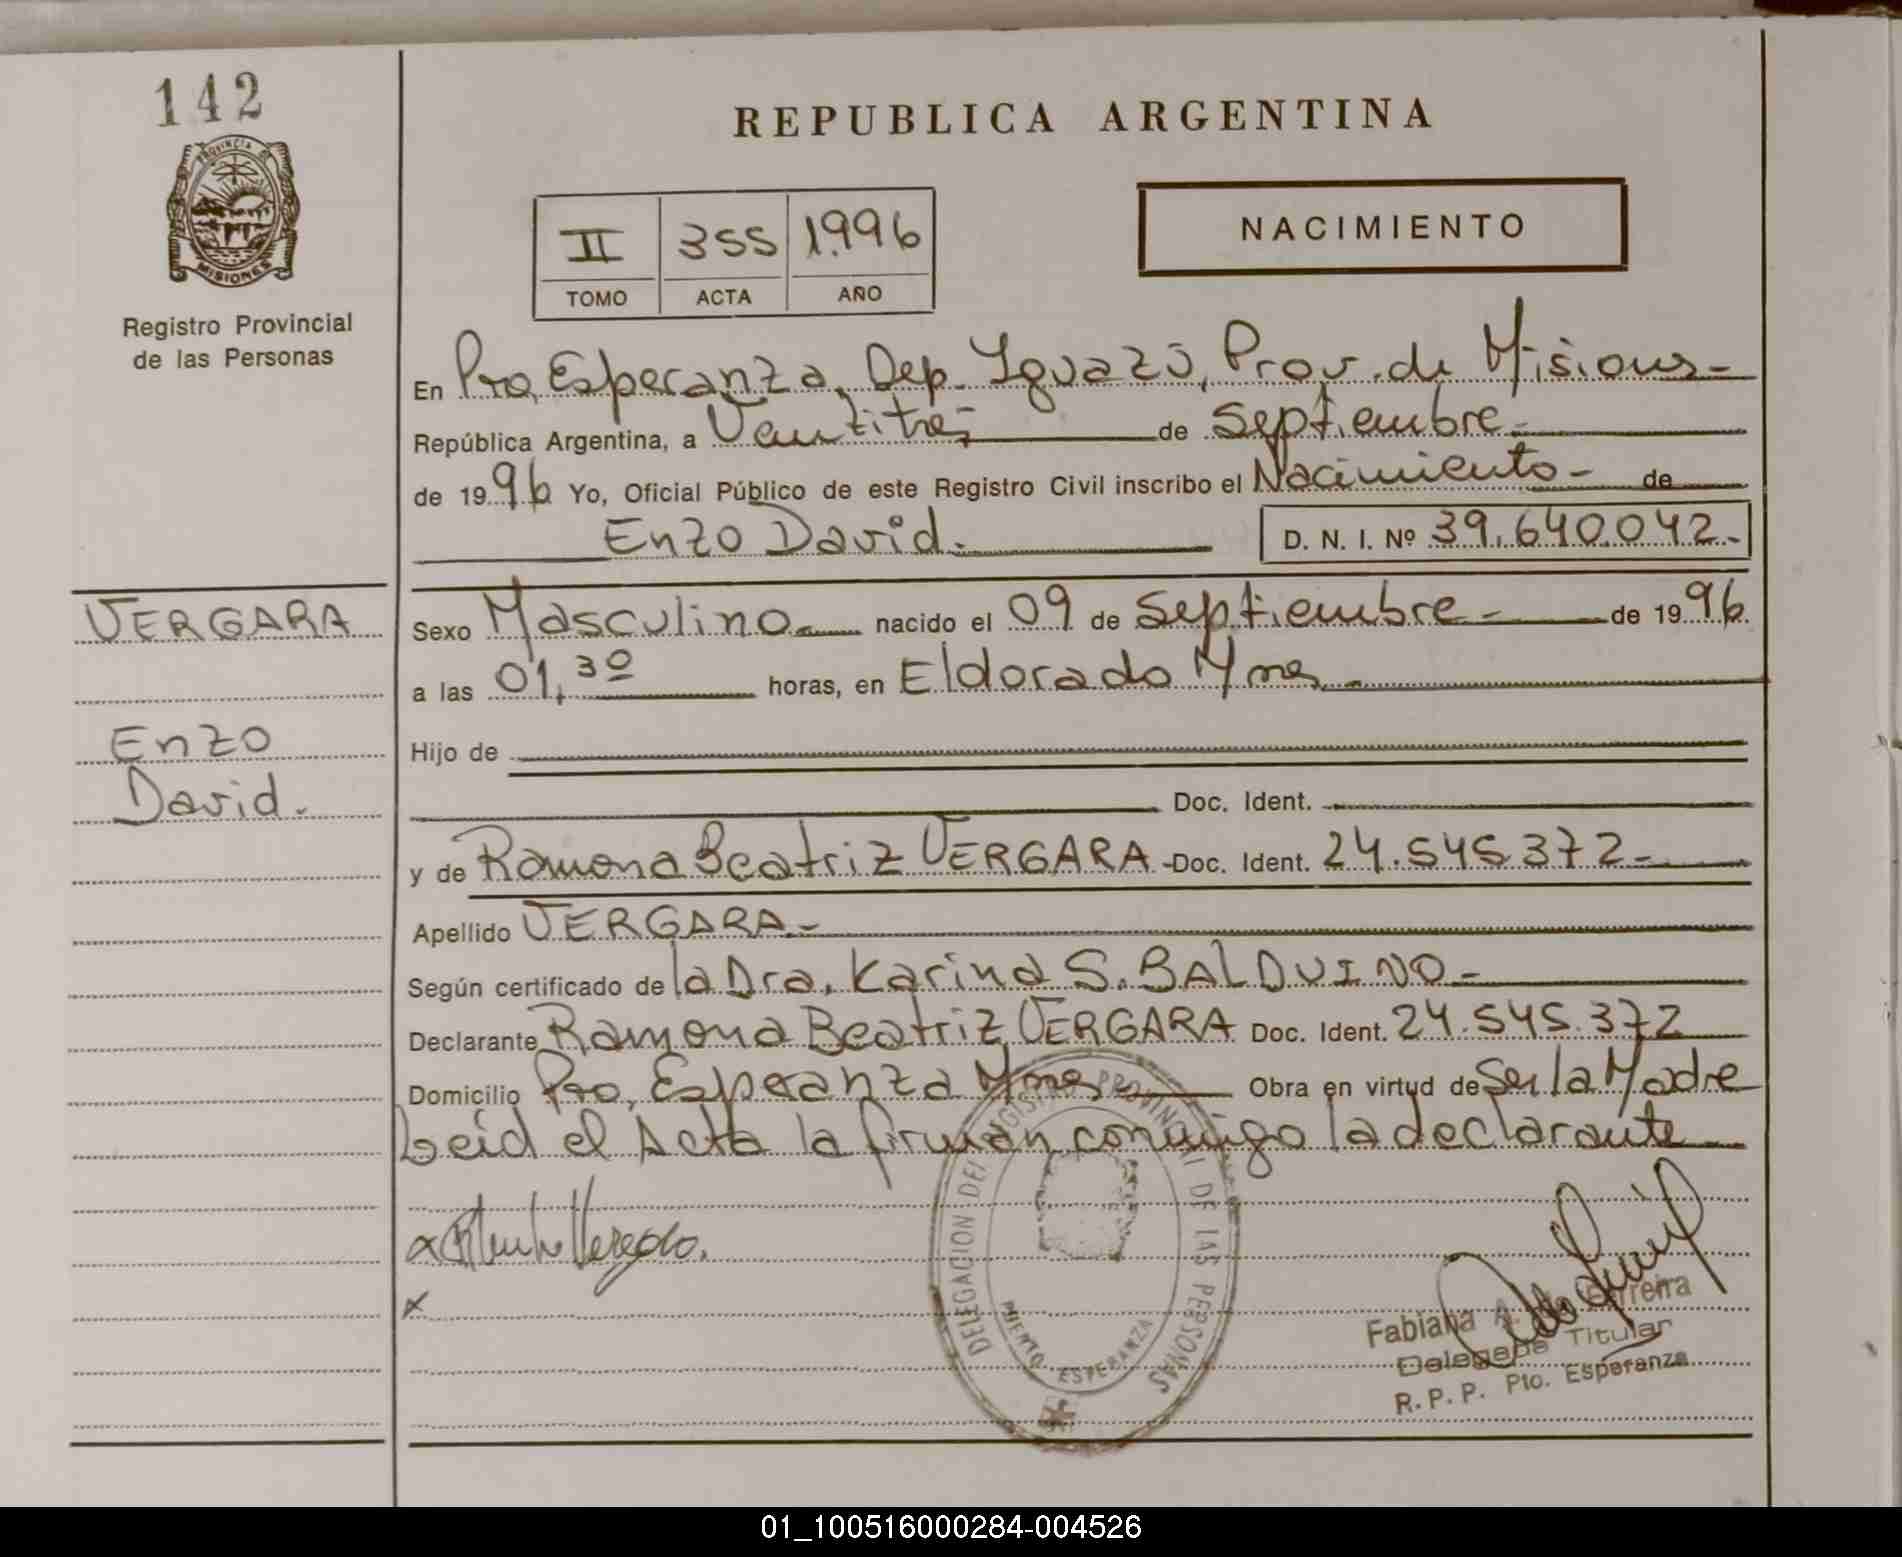 142
PROVINCIA DE
MISIONES
Registro Provincial
de las Personas
REPUBLICA ARGENTINA
II 355 1.996
TOMO ACTA AÑO
NACIMIENTO
En Pto, Esperanza, Dep. Iguazú, Prov. de Misiones-
República Argentina, a Veintitrés de Septiembre-
de 1996 Yo, Oficial Público de este Registro Civil inscribo el Nacimiento- de
Enzo David.
D. N. I. Nº 39.640.042.-
VERGARA
Enzo
David.
Sexo Masculino.- nacido el 09 de Septiembre- de 1996.
a las 01,30 horas, en Eldorado Mnes.-
Hijo de
Doc. Ident.
y de Ramona Beatriz VERGARA - Doc. Ident. 24.545.372-
Apellido VERGARA-
Según certificado de la Dra. Karina S. BALDUINO-
Declarante Ramona Beatriz VERGARA Doc. Ident. 24.545.372
Domicilio Pto, Esperanza Mnes- Obra en virtud de Ser la Madre
Leid el Acta la firman conmigo la declarante
DELEGACION DEL REGISTRO PROVINCIAL DE LAS PERSONAS
PUERTO ESPERANZA
x
Fabiana A. Ferreira
Delegada Titular
R. P. P. Pto. Esperanza
01_100516000284-004526